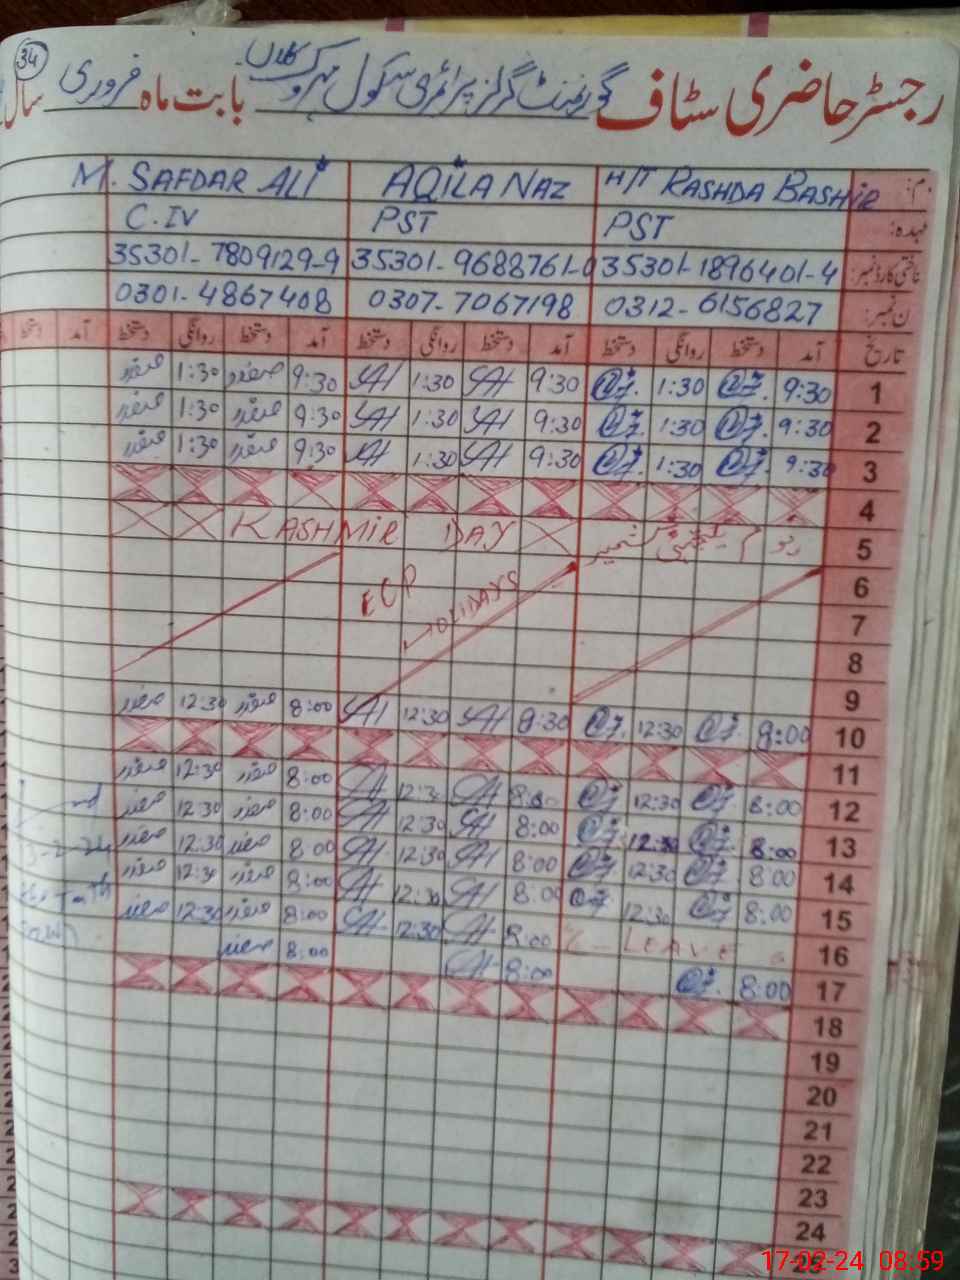 34
رجسٹر حاضری سٹاف گورنمنٹ گرلز پرائمری سکول بابت ماہ فروری سال
M. SAFDAR ALI AQILA NAZ H/T RASHDA BASHIR
C.IV PST PST عہدہ:
35301-7809129-9 35301-9688761-0 35301-1896401-4 شناختی کارڈ نمبر:
0301-4867408 0307-7067198 0312-6156827 فون نمبر:
تاریخ آمد دستخط روانگی دستخط آمد دستخط روانگی دستخط آمد دستخط روانگی دستخط آمد دستخط
صفدر 1:30 صفدر 9:30 1:30 9:30 1:30 9:30 1
صفدر 1:30 صفدر 9:30 1:30 9:30 1:30 9:30 2
صفدر 1:30 صفدر 9:30 1:30 9:30 1:30 9:30 3
4
KASHMIR DAY یوم یکجہتی کشمیر 5
6
ECP HOLIDAYS 7
8
9
صفدر 12:30 صفدر 8:00 12:30 8:30 12:30 8:00 10
11
صفدر 12:30 صفدر 8:00 12:30 8:00 12:30 8:00 12
صفدر 12:30 صفدر 8:00 12:30 8:00 12:30 8:00 13
صفدر 12:30 صفدر 8:00 12:30 8:00 12:30 8:00 14
صفدر 12:30 صفدر 8:00 12:30 8:00 12:30 8:00 15
صفدر 12:30 صفدر 8:00 12:30 8:00 LEAVE 16
صفدر 8:00 8:00 8:00 17
18
19
20
21
22
23
24
17-02-24 08:59